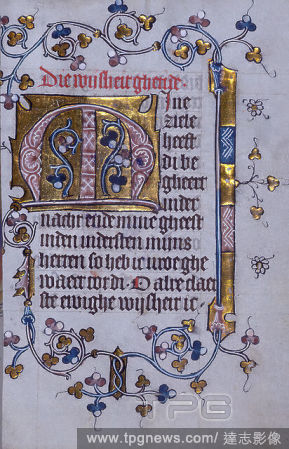 Die wijsheit ghetide.
Mine
ziele
heeft
di be
gheert
inder
nacht ende mine gheest
in den indersten mijns
herten so heb ic u vor ghe
waert tot di. D alre claer
ste ewighe wijsheit ic
TPG
www.tpgnews.com/ 達志影像